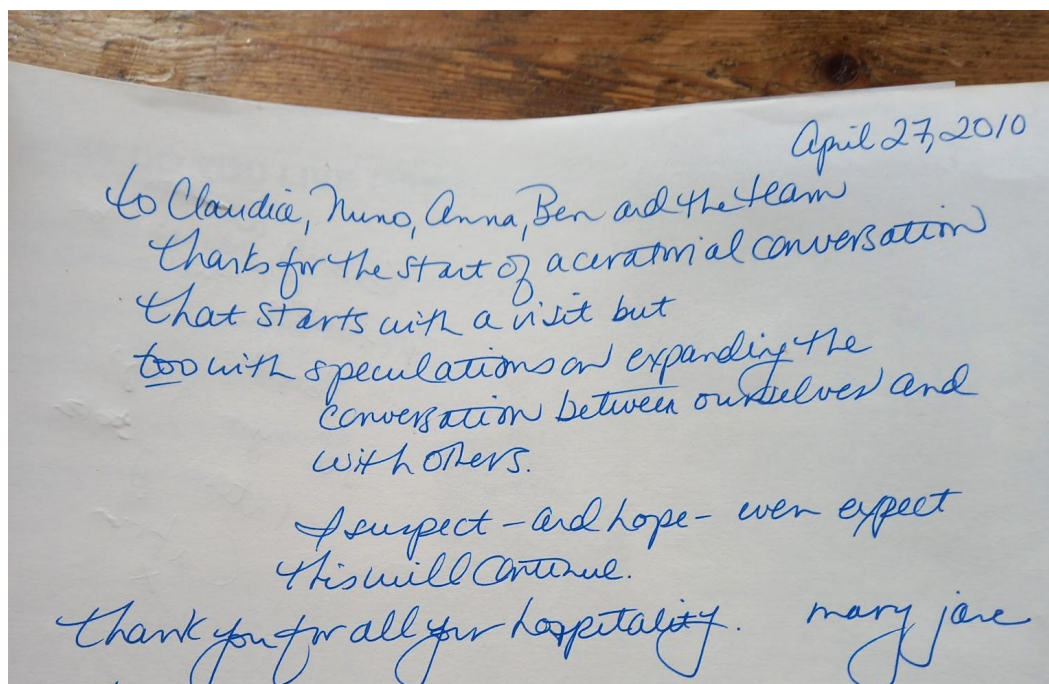 April 27, 2010
to Claudia, Nuno, Anna, Ben and the team
thanks for the start of a curatorial conversation
that starts with a visit but
too with speculations on expanding the
conversation between ourselves and
with others.
I suspect – and hope – even expect
this will continue.
thank you for all your hospitality. mary jane